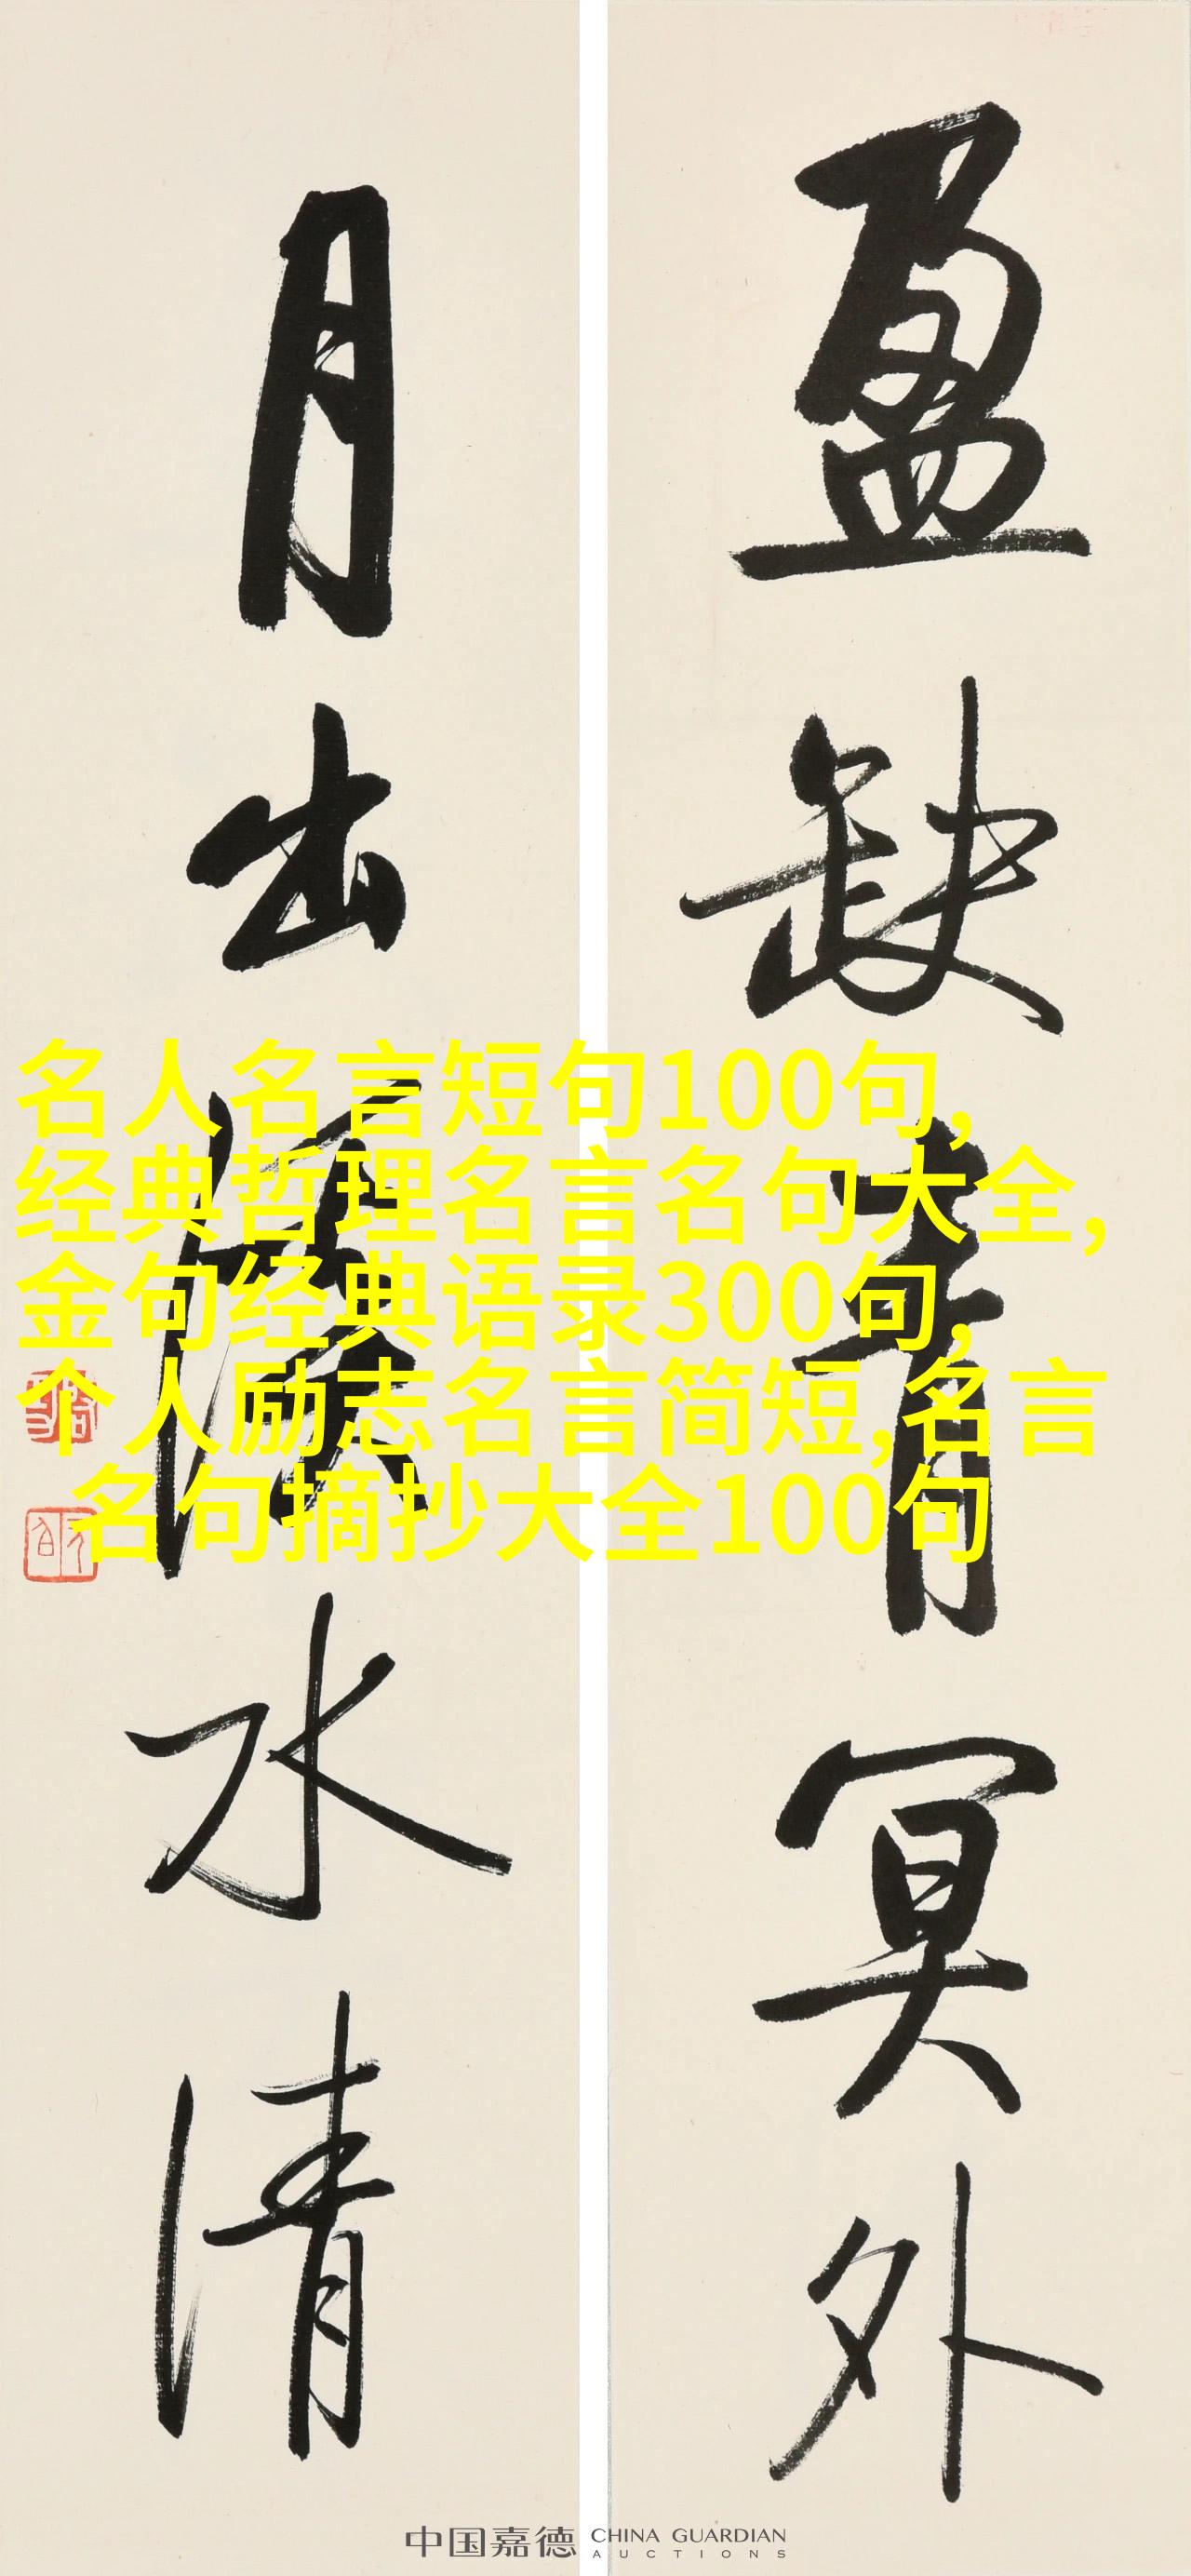 盈缺青冥外
月出水清
名人名言短句100句,
经典哲理名言名句大全,
金句经典语录300句,
个人励志名言简短,名言
名句摘抄大全100句
中国嘉德 CHINA GUARDIAN
AUCTIONS